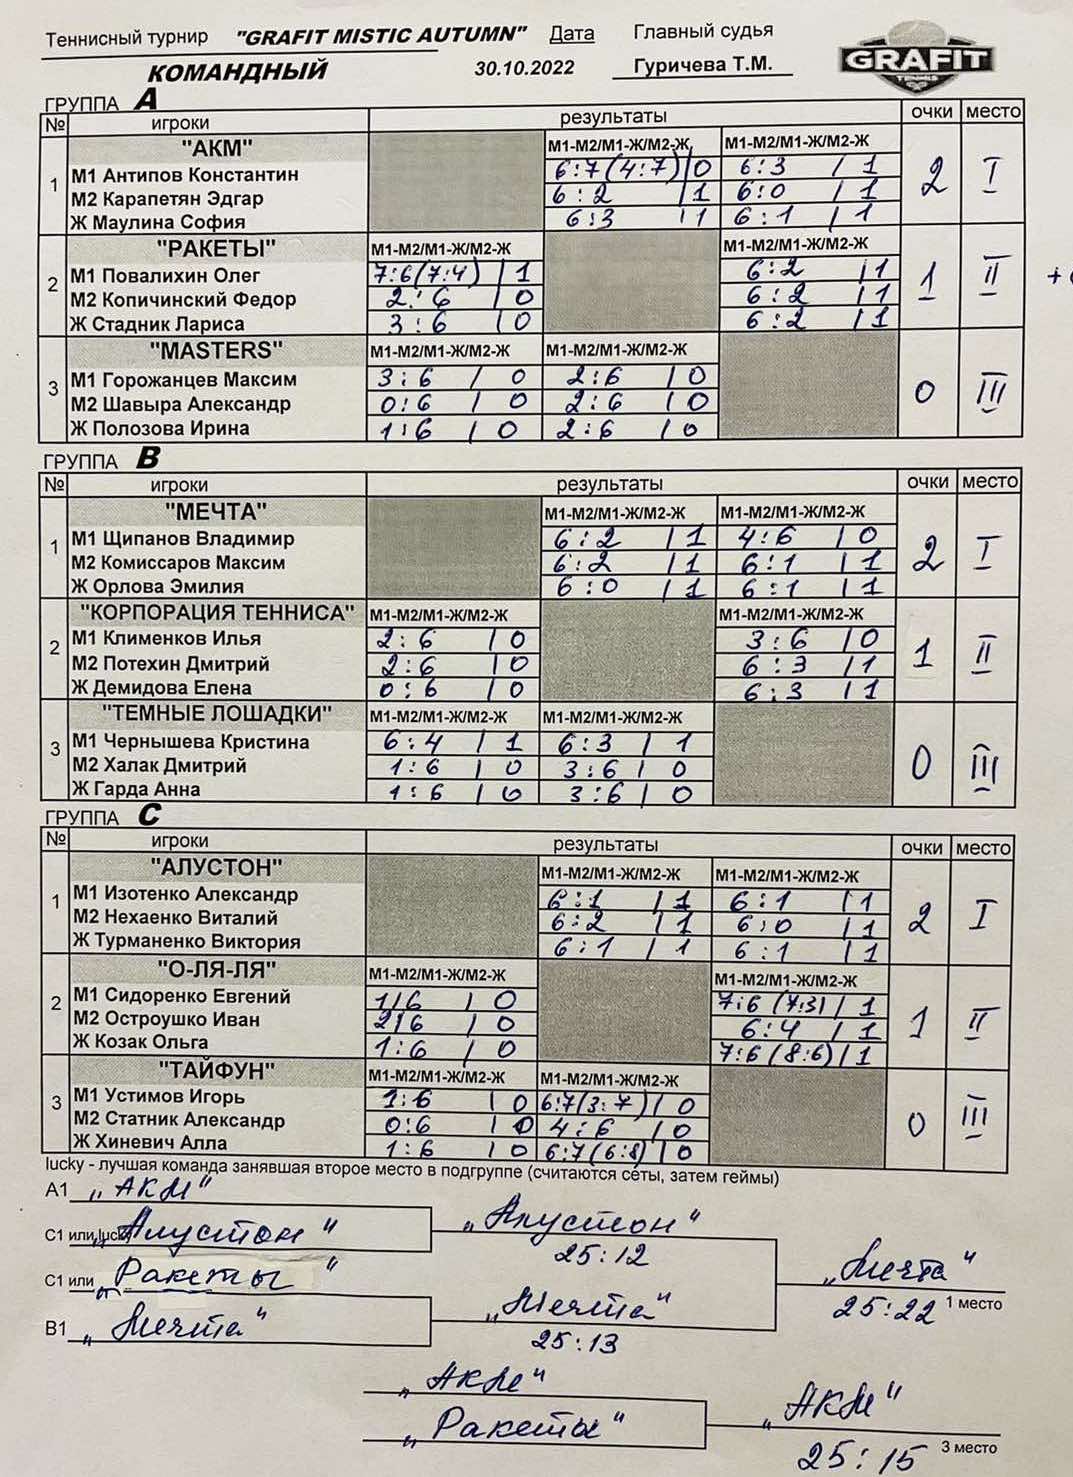 Теннисный турнир "GRAFIT MISTIC AUTUMN" Дата Главный судья
GRAFIT
TENNIS
КОМАНДНЫЙ 30.10.2022 Гуричева Т.М.
ГРУППА A
№ игроки результаты очки место
"АКМ" М1-М2/М1-Ж/М2-Ж М1-М2/М1-Ж/М2-Ж
1 М1 Антипов Константин 6:7(4:7)|0 6:3 |1 2 I
М2 Карапетян Эдгар 6:2 |1 6:0 |1
Ж Маулина София 6:3 |1 6:1 |1
"РАКЕТЫ" М1-М2/М1-Ж/М2-Ж М1-М2/М1-Ж/М2-Ж
2 М1 Повалихин Олег 7:6(7:4) |1 6:2 |1 1 II
М2 Копичинский Федор 2:6 |0 6:2 |1
Ж Стадник Лариса 3:6 |0 6:2 |1
"MASTERS" М1-М2/М1-Ж/М2-Ж М1-М2/М1-Ж/М2-Ж
3 М1 Горожанцев Максим 3:6 |0 2:6 |0 0 III
М2 Шавыра Александр 0:6 |0 2:6 |0
Ж Полозова Ирина 1:6 |0 2:6 |0
ГРУППА B
№ игроки результаты очки место
"МЕЧТА" М1-М2/М1-Ж/М2-Ж М1-М2/М1-Ж/М2-Ж
1 М1 Щипанов Владимир 6:2 |1 4:6 |0 2 I
М2 Комиссаров Максим 6:2 |1 6:1 |1
Ж Орлова Эмилия 6:0 |1 6:1 |1
"КОРПОРАЦИЯ ТЕННИСА" М1-М2/М1-Ж/М2-Ж М1-М2/М1-Ж/М2-Ж
2 М1 Клименков Илья 2:6 |0 3:6 |0 1 II
М2 Потехин Дмитрий 2:6 |0 6:3 |1
Ж Демидова Елена 0:6 |0 6:3 |1
"ТЕМНЫЕ ЛОШАДКИ" М1-М2/М1-Ж/М2-Ж М1-М2/М1-Ж/М2-Ж
3 М1 Чернышева Кристина 6:4 |1 6:3 |1 0 III
М2 Халак Дмитрий 1:6 |0 3:6 |0
Ж Гарда Анна 1:6 |0 3:6 |0
ГРУППА C
№ игроки результаты очки место
"АЛУСТОН" М1-М2/М1-Ж/М2-Ж М1-М2/М1-Ж/М2-Ж
1 М1 Изотенко Александр 6:1 |1 6:1 |1 2 I
М2 Нехаенко Виталий 6:2 |1 6:0 |1
Ж Турманенко Виктория 6:1 |1 6:1 |1
"О-ЛЯ-ЛЯ" М1-М2/М1-Ж/М2-Ж М1-М2/М1-Ж/М2-Ж
2 М1 Сидоренко Евгений 1|6 |0 7:6 (7:3) |1 1 II
М2 Остроушко Иван 2|6 |0 6:4 |1
Ж Козак Ольга 1:6 |0 7:6 (8:6) |1
"ТАЙФУН" М1-М2/М1-Ж/М2-Ж М1-М2/М1-Ж/М2-Ж
3 М1 Устимов Игорь 1:6 |0 6:7(3:7) |0 0 III
М2 Статник Александр 0:6 |0 4:6 |0
Ж Хиневич Алла 1:6 |0 6:7(6:8) |0
lucky - лучшая команда занявшая второе место в подгруппе (считаются сеты, затем геймы)
А1 „АКМ"
С1 или lucky „Алустон" „Алустон"
25:12
С1 или „Ракеты" „Мечта"
25:22 1 место
„Мечта"
В1 „Мечта" 25:13
„АКМ"
„АКМ"
„Ракеты"
25:15 3 место